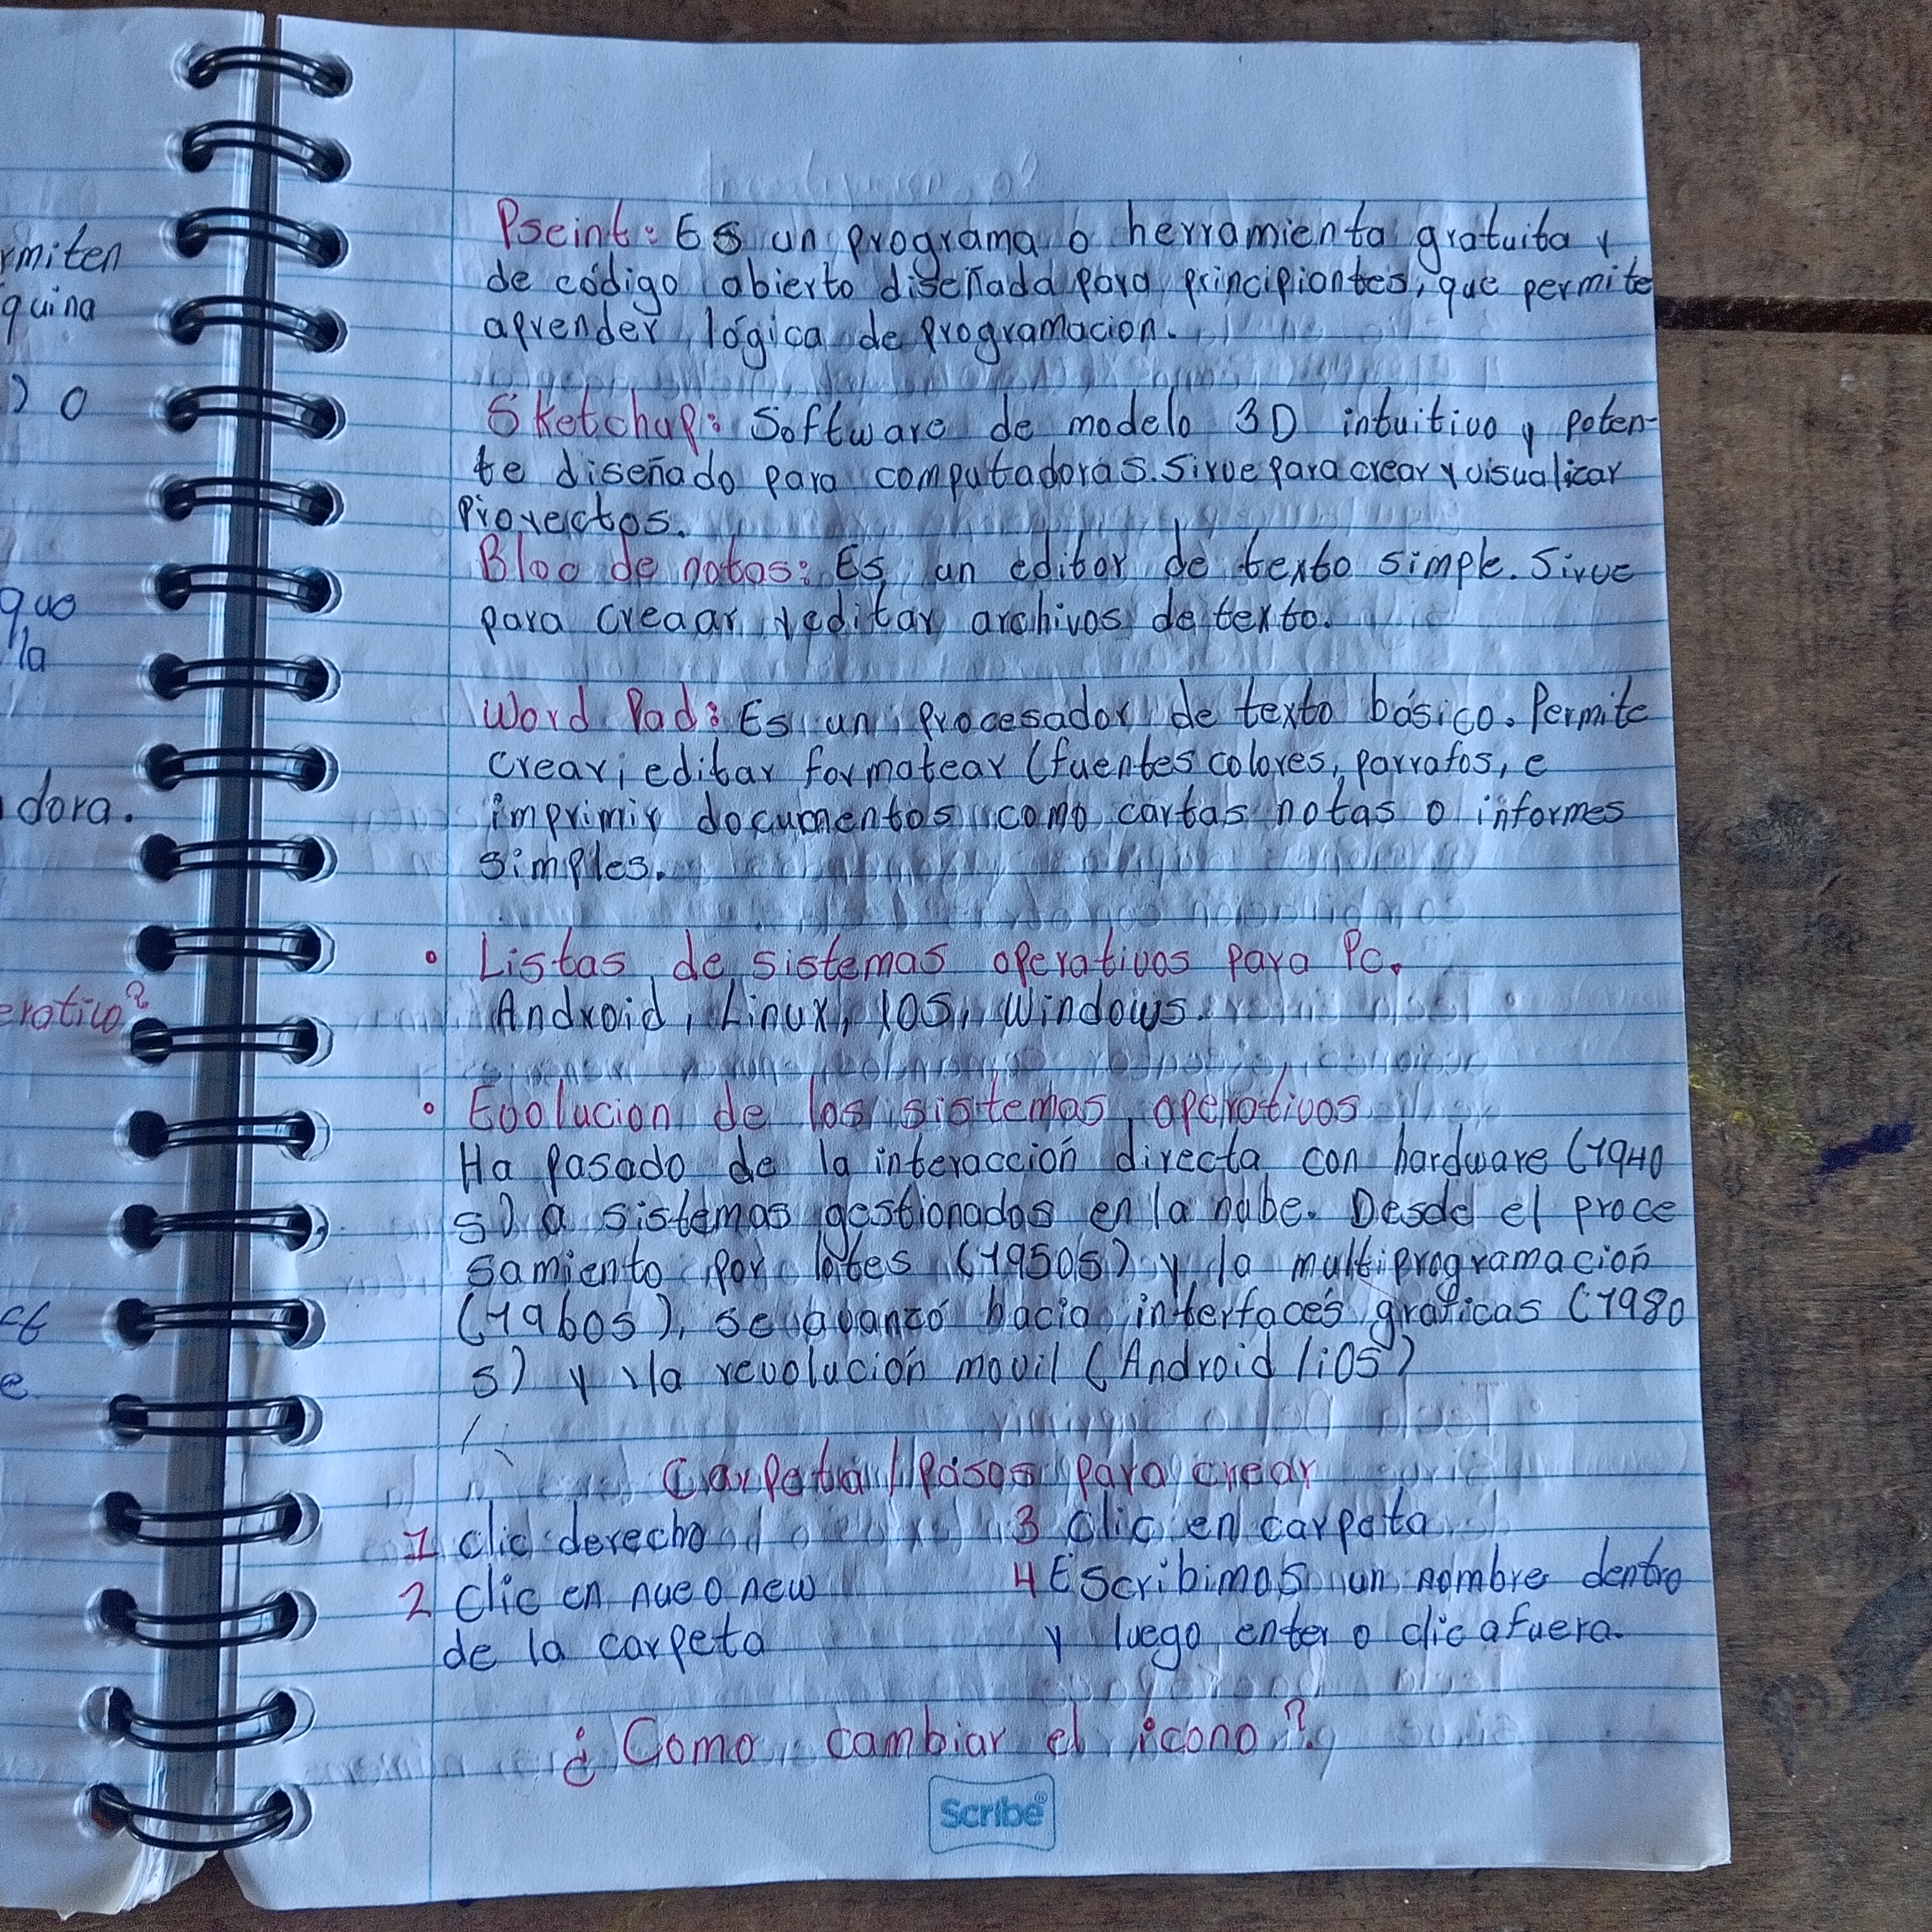 rmiten
quina
) o
que
la
dora.
erativo?
e
Pseint: Es un programa o herramienta gratuita y
de código abierto diseñada para principiantes, que permite
aprender lógica de programacion.
Sketchup: Software de modelo 3D intuitivo y poten-
te diseñado para computadoras. Sirve para crear y visualizar
Proyectos.
Bloc de notas: Es un editor de texto simple. Sirve
para creaar y editar archivos de texto.
Word Pad: Es un procesador de texto básico. Permite
crear, editar formatear (fuentes colores, parrafos, e
imprimir documentos como cartas notas o informes
simples.
• Listas de sistemas operativos para Pc.
Android, Linux, IOS, Windows.
• Evolucion de los sistemas operativos
Ha pasado de la interacción directa con hardware (1940
s) a sistemas gestionados en la nube. Desde el proce
samiento por lotes (1950s) y la multiprogramación
(1960s), se avanzó hacia interfaces gráficas (1980
s) y la revolución movil (Android/iOS)
Carpeta/Pasos para crear
1 clic derecho
2 Clic en nueo new
de la carpeta
3 Clic en carpeta
4 Escribimos un nombre dentro
y luego enter o clic afuera.
¿Como cambiar el icono?
Scribe®